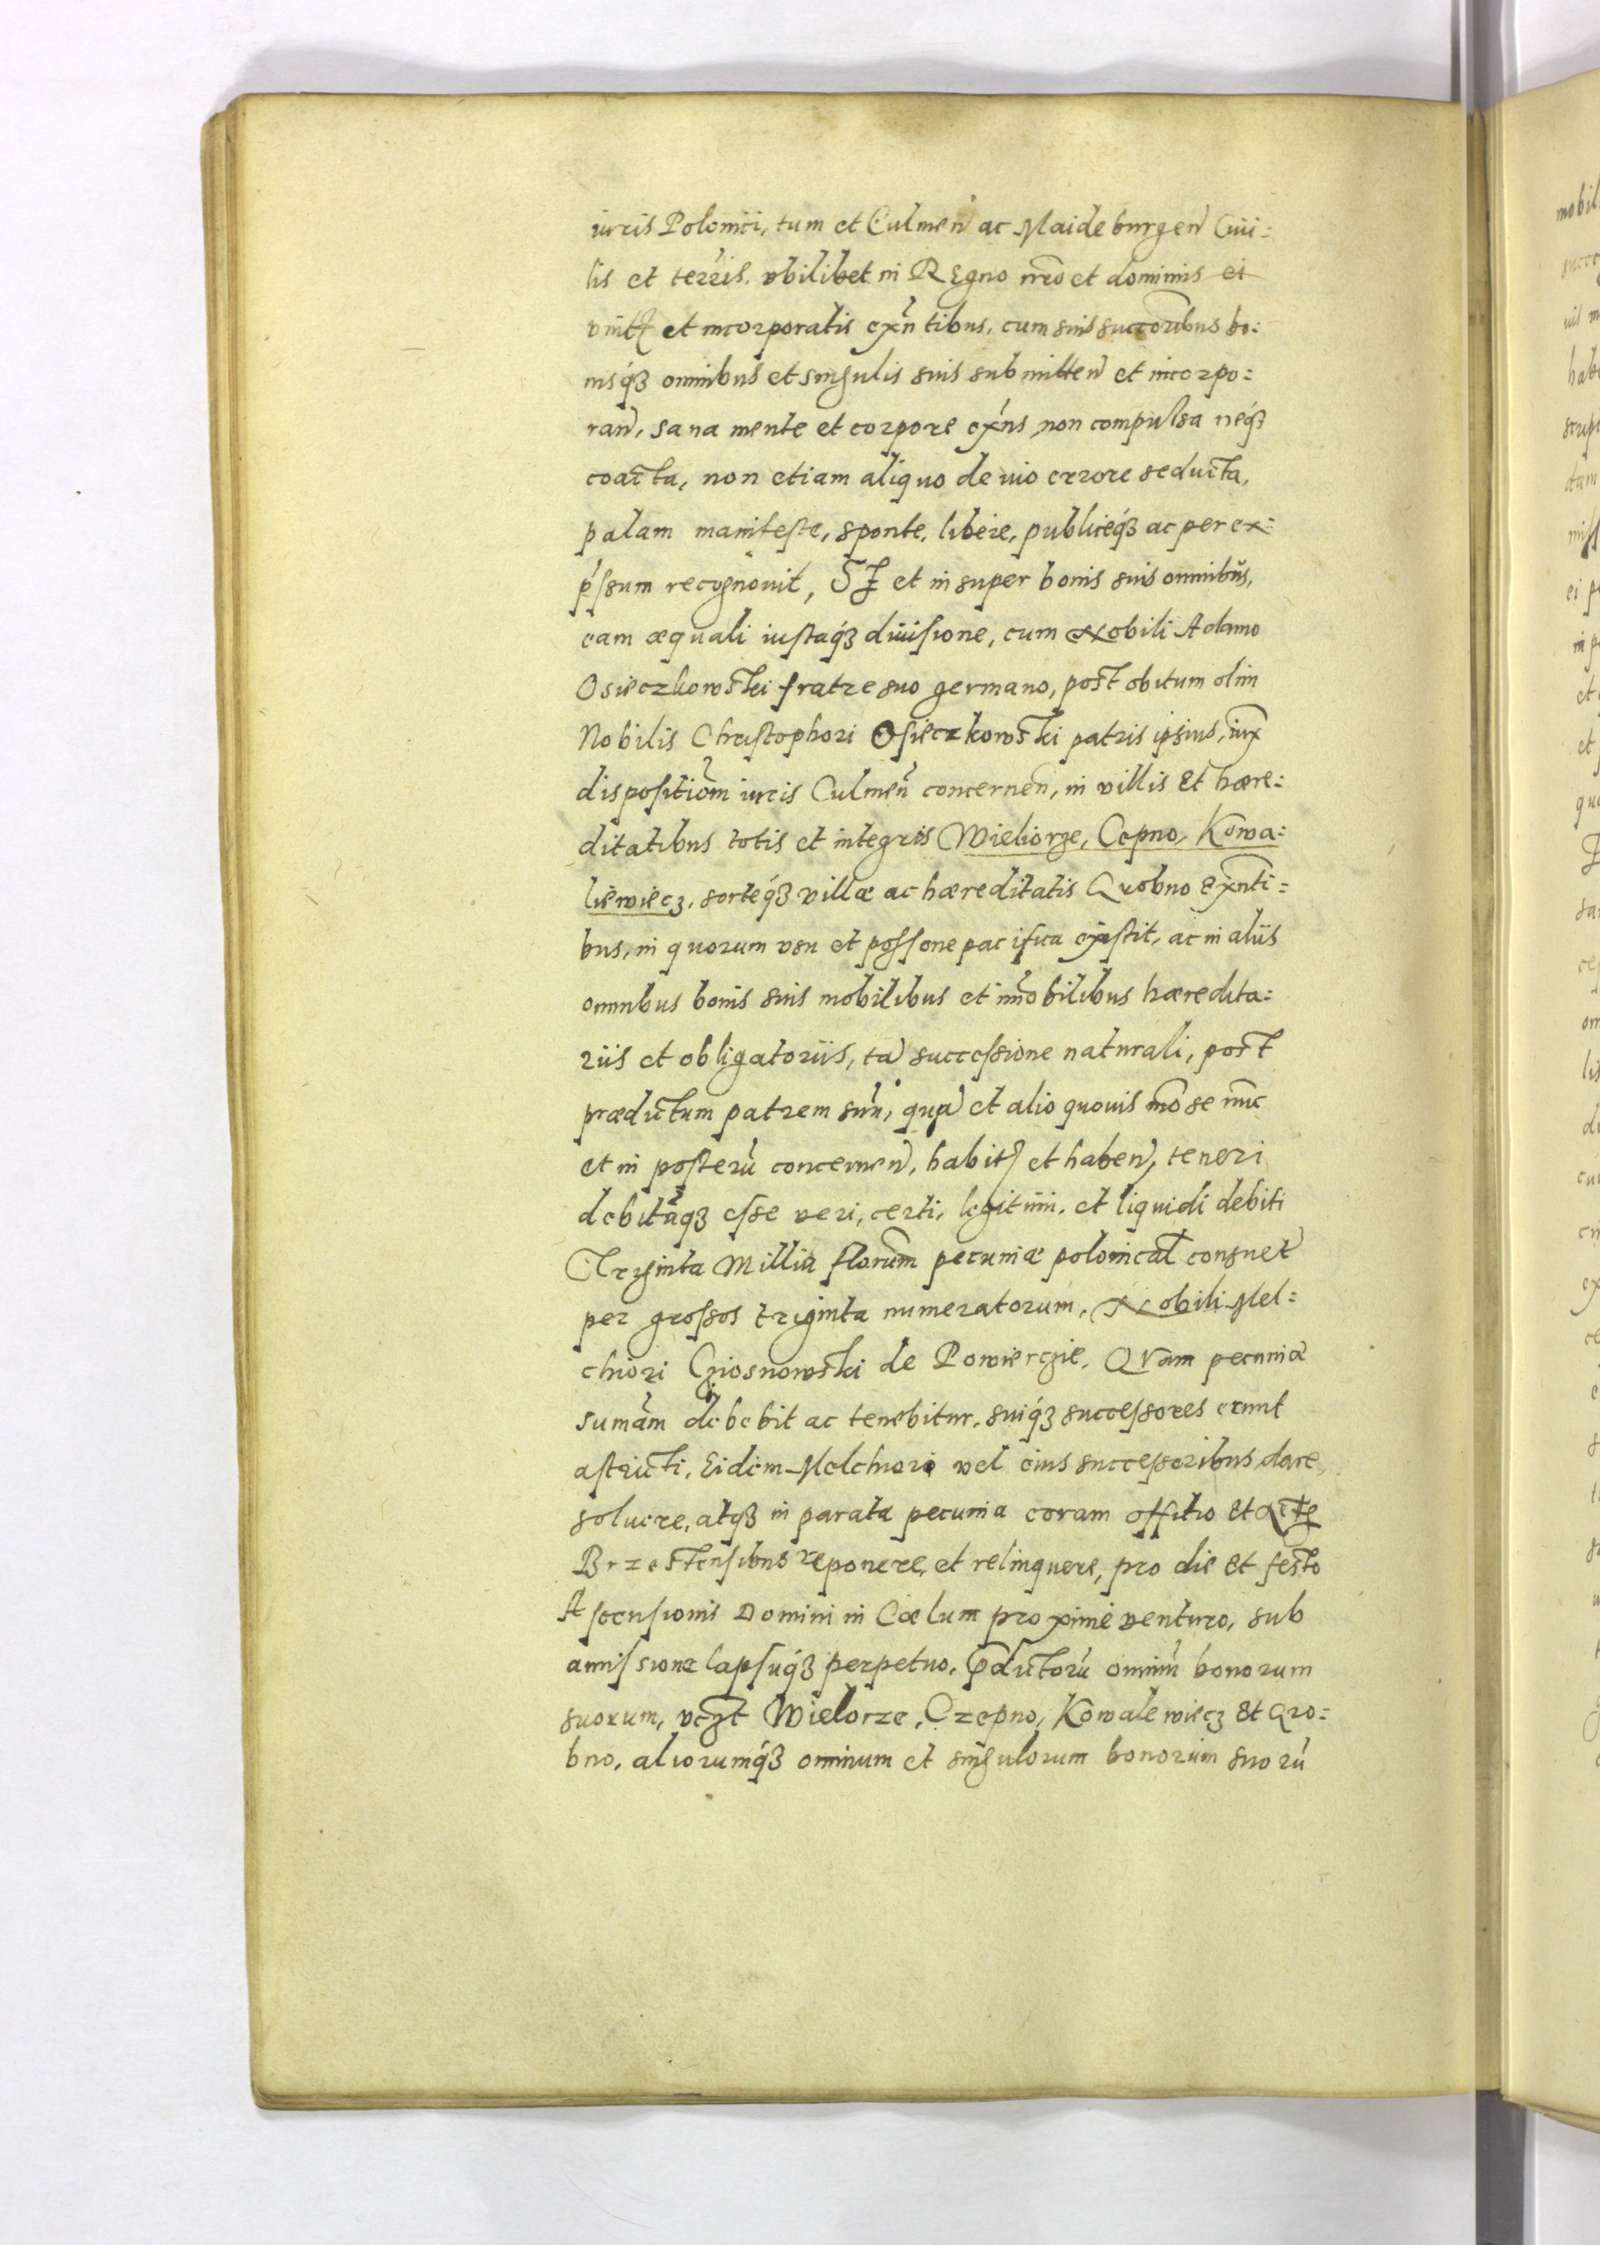 iuris Polonici, tum et Culmen̄ ac Maideburgen̄ Ciui:
lis et terris. vbilibet in Regno nr̄o et dominiis ei
vnit et incorporatis exn̄tibus, cum suis succoribus bo:
nisq́ꝫ omnibus et singulis suis submitten̄ et incorpo:
ran̄, sana mente et corpore exn̄s non compulsa neq́ꝫ
coacta, non etiam aliquo deuio errore seducta,
palam manifeste, sponte, libere, publiceq́ꝫ ac per ex:
p̄ssum recognouit, et in super bonis suis omnibus,
eam æquali iustaq́ꝫ diuisione, cum Nobili Adamo
Osieczkowski fratre suo germano, post obitum olim
Nobilis Christophori Osieczkowski patris ipsius, iux̄
dispositiōm iuris Culmen̄ concernen̄, in villis Et hære:
ditatibus totis et integris Wieliorze, Cepno, Kowa:
liewiecz, sorteq́ꝫ villæ ac hæreditatis Qrobno Exn̄ti:
bus, in quorum vsu et possone pacifica existit, ac in aliis
omnibus bonis suis mobilibus et im̄obilibus hæredita:
riis et obligatoriis, tā successione naturali, post
prædictum patrem suū, quā et alio quouis mō se nūc
et in posterū concernen̄, habit et haben̄, teneri
debitāqꝫ esse veri, certi, legitimi, et liquidi debiti
Triginta Millia florum̄ pecuniæ polonical consuet
per grossos triginta numeratorum, Nobili Mel:
chiori Gziosnowski de Powierczie, Qvam pecuniæ
sumām debebit ac tenebitur, suiq́ꝫ successores erunt
astricti, Eidem Melchiori vel eius successoribus dare,
soluere, atqꝫ in parata pecunia coram offitio Et
Brzestensibus reponere, et relinquere, pro die Et festo
Ascensionis Domini in Cœlum proximè venturo, sub
amissione lapsuq́ꝫ perpetuo, p̄dictorū omniū bonorum
suorum, vczt Wielorze, Czepno, Kowalewiecz Et Qro:
bno, aliorumq́ꝫ omnium et singulorum bonorum suorū